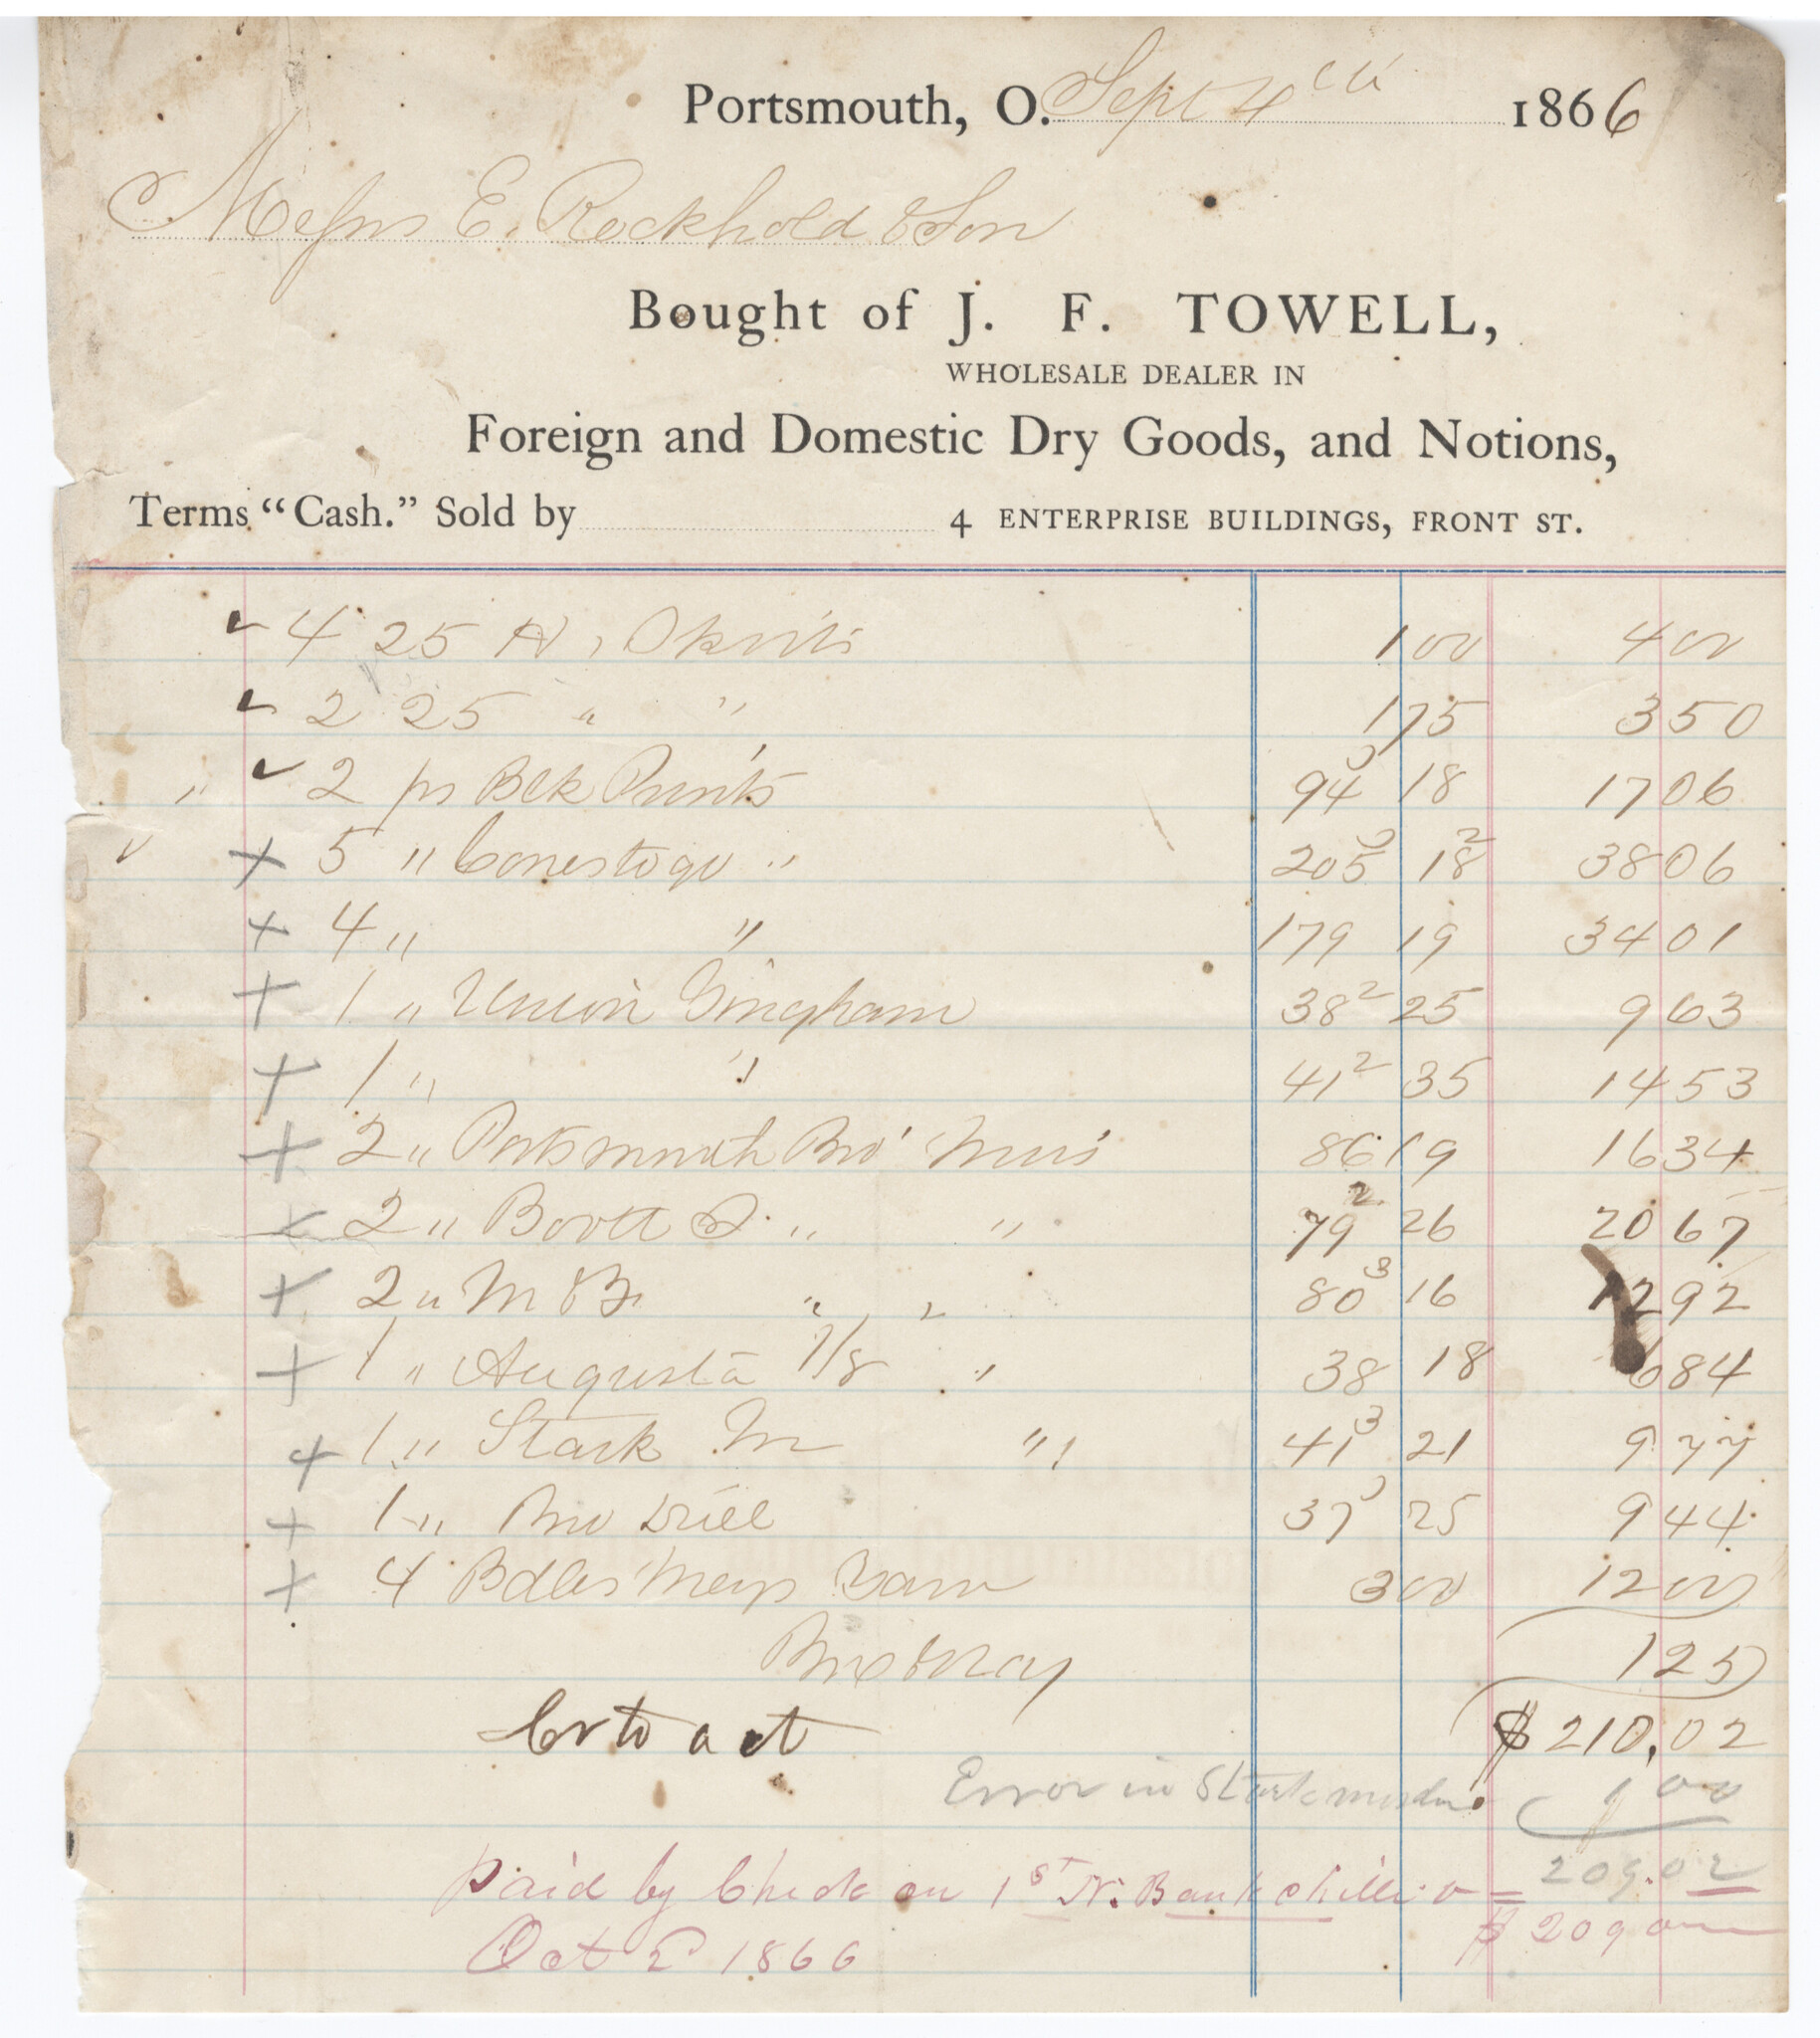 Portsmouth, O. Sept 4th 1866
Messrs E. Rockhold & Son
Bought of J. F. TOWELL,
WHOLESALE DEALER IN
Foreign and Domestic Dry Goods, and Notions,
Terms "Cash." Sold by 4 ENTERPRISE BUILDINGS, FRONT ST.
4 25 H, Skirts 1 00 4 00
2 25 " " 1 75 3 50
2 ps Blk Prints 94³ 18 17 06
5 " Conestoga " 205³ 18² 38 06
4 " " 179 19 34 01
1 " Union Gingham 38² 25 9 63
1 " " 41² 35 14 53
2 " Portsmouth Bro' Mus 86 19 16 34
2 " Boott S. " " 79² 26 20 67
2 " M & Br " " 80³ 16 12 92
1 " Augusta 7/8 " 38 18 6 84
1 " Stark M " 41³ 21 9 77
1 " Bro Drill 37³ 25 9 44
4 Bdles Yarn 3 00 12 00
Box & Dray 1 25
Cr to act $210.02
Error in Stark muslin 1 00
209.02
Paid by Check on 1st N. Bank Chilli. o = $209 02
Oct 2 1866